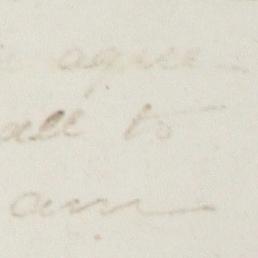 agree
all to
am